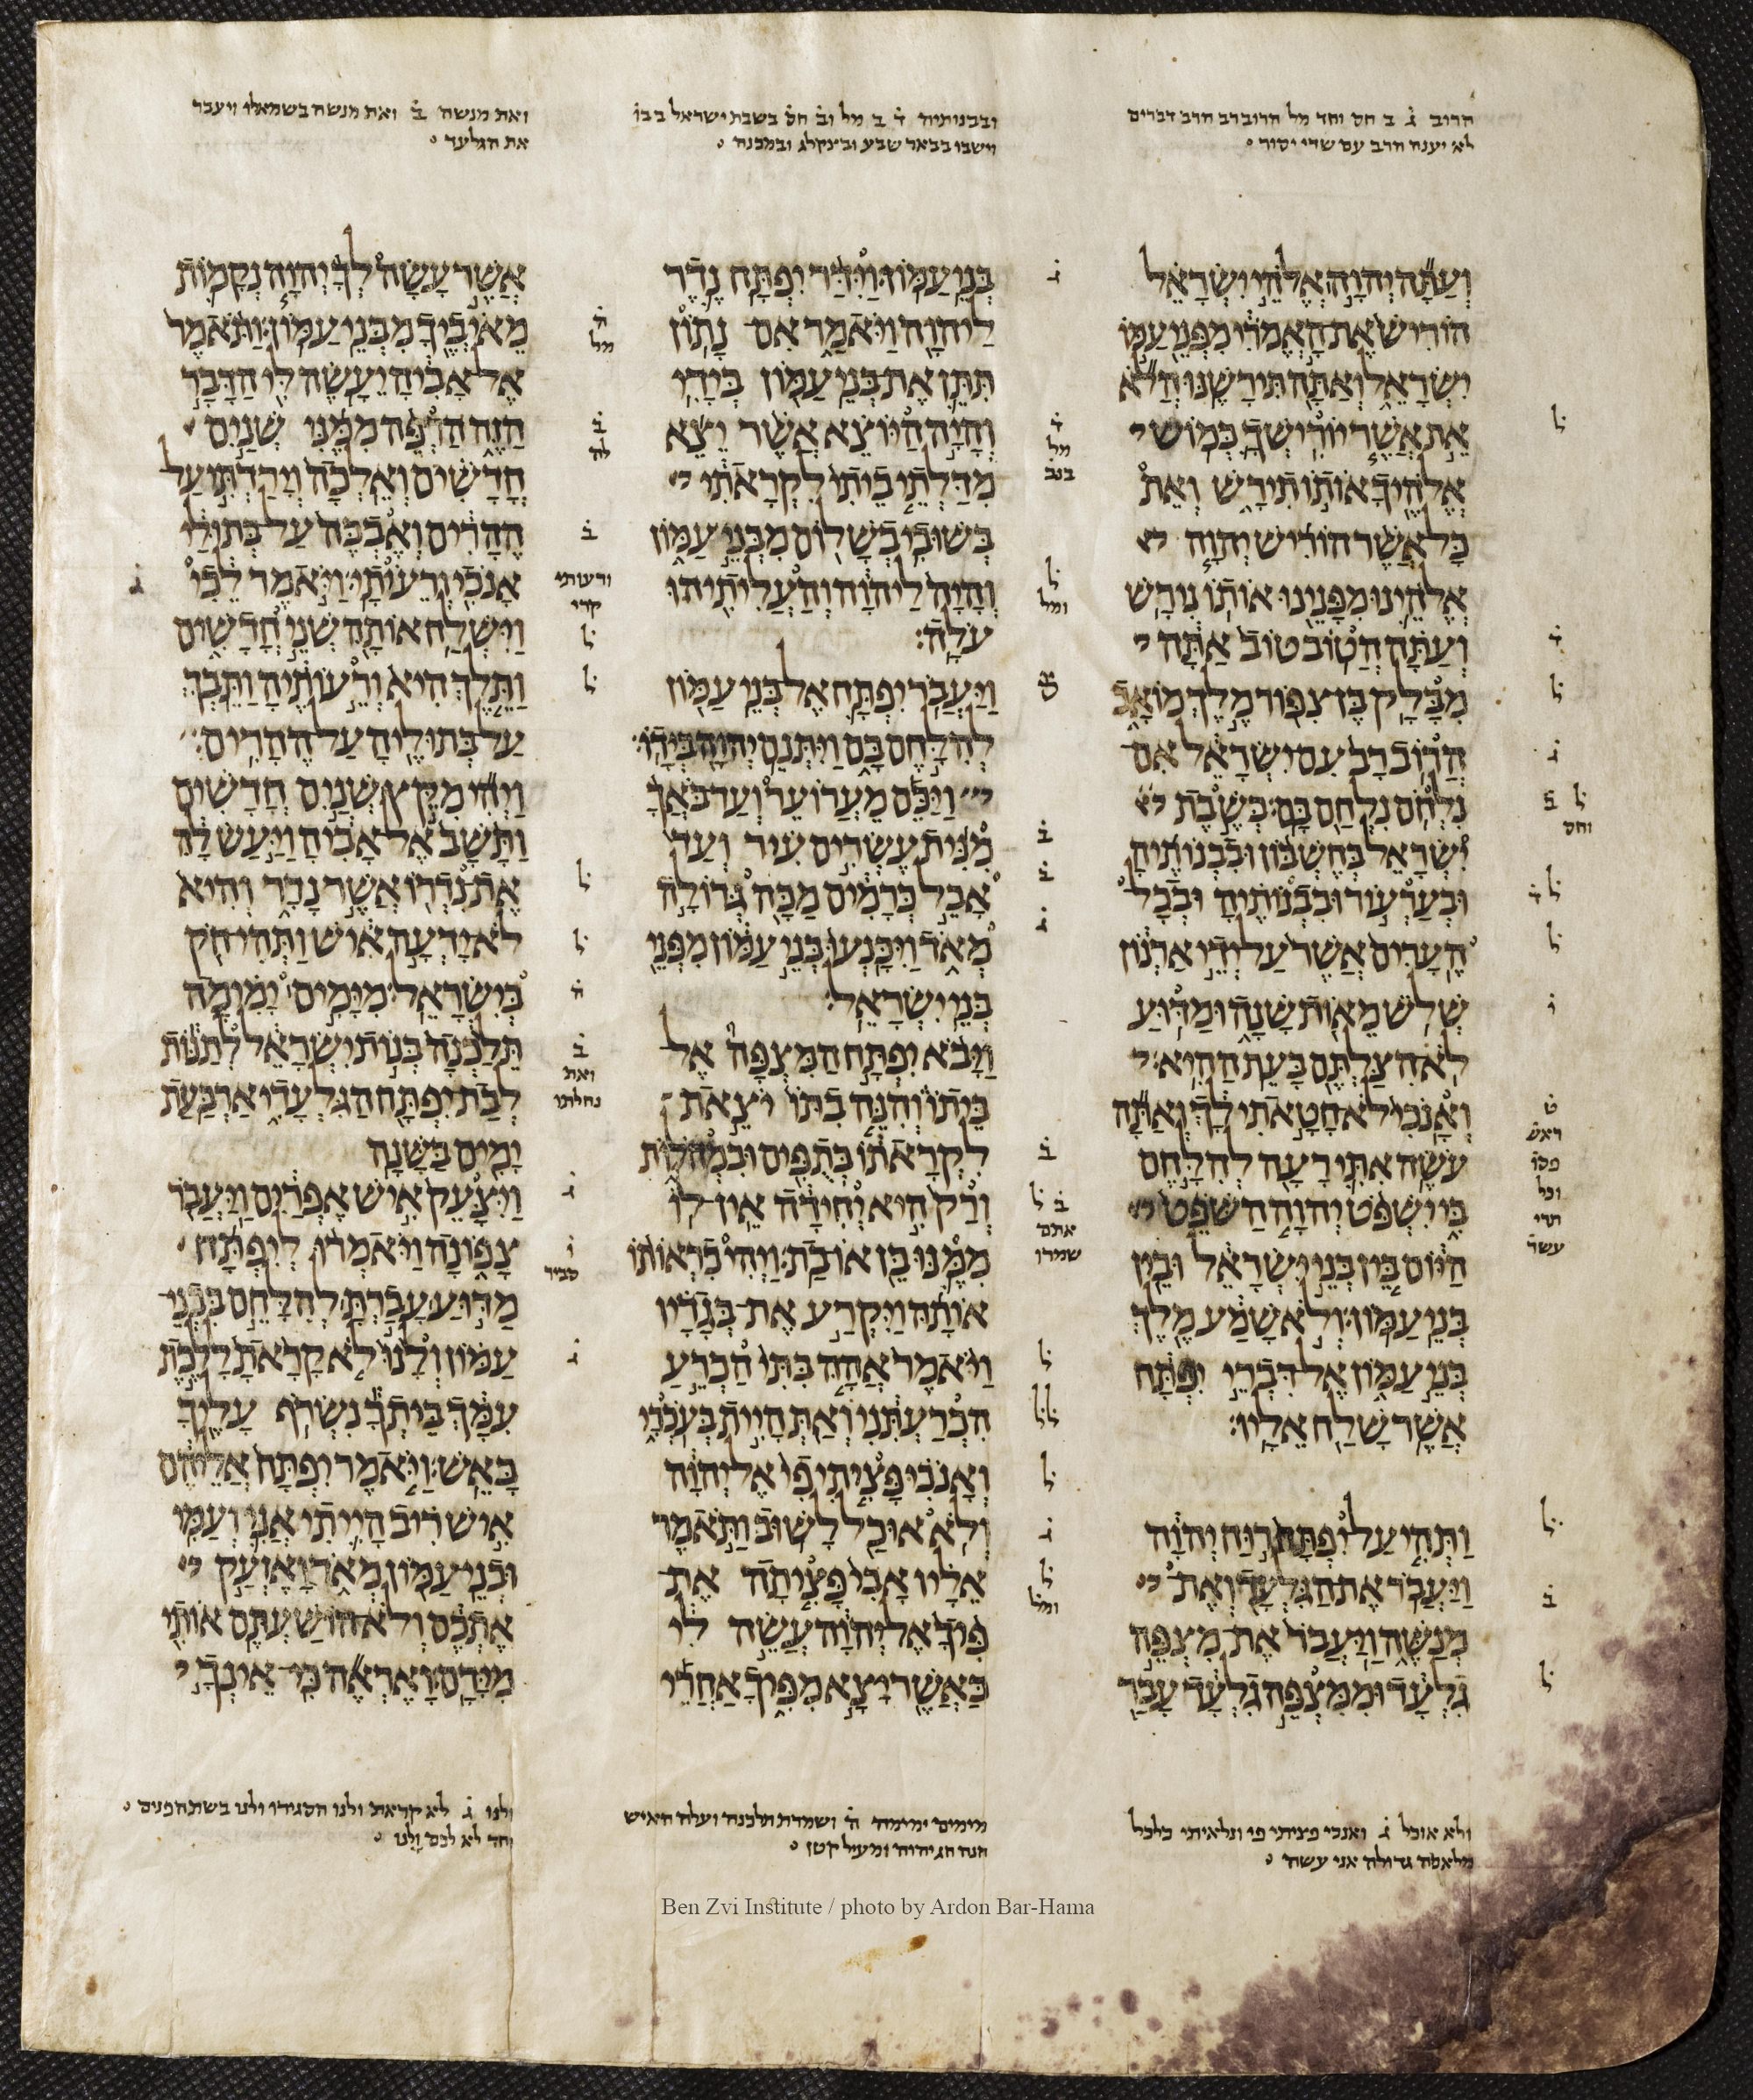 הרוב ג ב חס וחד מל הרוב רב הרב דברים
לא יענה הרב עם שדי יסור
ובבנותיה ד ב מל וב חס בשבת ישראל בבו
וישבו בבאר שבע ובצקלג ובמכנה
ואת מנשה ב ואת מנשה בשמאלו ויעבר
את הגלעד
וְעַתָּה יְהוָה אֱלֹהֵי יִשְׂרָאֵל
הוֹרִישׁ אֶת הָאֱמֹרִי מִפְּנֵי עַמּוֹ
יִשְׂרָאֵל וְאַתָּה תִּירָשֶׁנּוּ׃ הֲלֹא
אֵת אֲשֶׁר יוֹרִישְׁךָ כְּמוֹשׁ
אֱלֹהֶיךָ אוֹתוֹ תִירָשׁ וְאֵת
כָּל אֲשֶׁר הוֹרִישׁ יְהוָה
אֱלֹהֵינוּ מִפָּנֵינוּ אוֹתוֹ נִירָשׁ׃
וְעַתָּה הֲטוֹב טוֹב אַתָּה
מִבָּלָק בֶּן צִפּוֹר מֶלֶךְ מוֹאָב
הֲרוֹב רָב עִם יִשְׂרָאֵל אִם
נִלְחֹם נִלְחַם בָּם׃ בְּשֶׁבֶת
יִשְׂרָאֵל בְּחֶשְׁבּוֹן וּבִבְנוֹתֶיהָ
וּבְעַרְעוֹר וּבִבְנוֹתֶיהָ וּבְכָל
הֶעָרִים אֲשֶׁר עַל יְדֵי אַרְנוֹן
שְׁלֹשׁ מֵאוֹת שָׁנָה וּמַדּוּעַ
לֹא הִצַּלְתֶּם בָּעֵת הַהִיא׃
וְאָנֹכִי לֹא חָטָאתִי לָךְ וְאַתָּה
עֹשֶׂה אִתִּי רָעָה לְהִלָּחֶם
בִּי יִשְׁפֹּט יְהוָה הַשֹּׁפֵט
הַיּוֹם בֵּין בְּנֵי יִשְׂרָאֵל וּבֵין
בְּנֵי עַמּוֹן׃ וְלֹא שָׁמַע מֶלֶךְ
בְּנֵי עַמּוֹן אֶל דִּבְרֵי יִפְתָּח
אֲשֶׁר שָׁלַח אֵלָיו׃
וַתְּהִי עַל יִפְתָּח רוּחַ יְהוָה
וַיַּעֲבֹר אֶת הַגִּלְעָד וְאֶת
מְנַשֶּׁה וַיַּעֲבֹר אֶת מִצְפֵּה
גִלְעָד וּמִמִּצְפֵּה גִלְעָד עָבַר
בְּנֵי עַמּוֹן׃ וַיִּדַּר יִפְתָּח נֶדֶר
לַיהוָה וַיֹּאמַר אִם נָתוֹן
תִּתֵּן אֶת בְּנֵי עַמּוֹן בְּיָדִי׃
וְהָיָה הַיּוֹצֵא אֲשֶׁר יֵצֵא
מִדַּלְתֵי בֵיתִי לִקְרָאתִי
בְּשׁוּבִי בְשָׁלוֹם מִבְּנֵי עַמּוֹן
וְהָיָה לַיהוָה וְהַעֲלִיתִיהוּ
עֹלָה׃
וַיַּעֲבֹר יִפְתָּח אֶל בְּנֵי עַמּוֹן
לְהִלָּחֶם בָּם וַיִּתְּנֵם יְהוָה בְּיָדוֹ׃
וַיַּכֵּם מֵעֲרוֹעֵר וְעַד בֹּאֲךָ
מִנִּית עֶשְׂרִים עִיר וְעַד
אָבֵל כְּרָמִים מַכָּה גְּדוֹלָה
מְאֹד וַיִּכָּנְעוּ בְּנֵי עַמּוֹן מִפְּנֵי
בְּנֵי יִשְׂרָאֵל׃
וַיָּבֹא יִפְתָּח הַמִּצְפָּה אֶל
בֵּיתוֹ וְהִנֵּה בִתּוֹ יֹצֵאת
לִקְרָאתוֹ בְּתֻפִּים וּבִמְחֹלוֹת
וְרַק הִיא יְחִידָה אֵין לוֹ
מִמֶּנּוּ בֵּן אוֹ בַת׃ וַיְהִי כִרְאוֹתוֹ
אוֹתָהּ וַיִּקְרַע אֶת בְּגָדָיו
וַיֹּאמֶר אֲהָהּ בִּתִּי הַכְרֵעַ
הִכְרַעְתִּנִי וְאַתְּ הָיִית בְּעֹכְרָי
וְאָנֹכִי פָּצִיתִי פִי אֶל יְהוָה
וְלֹא אוּכַל לָשׁוּב׃ וַתֹּאמֶר
אֵלָיו אָבִי פָּצִיתָה אֶת
פִּיךָ אֶל יְהוָה עֲשֵׂה לִי
כַּאֲשֶׁר יָצָא מִפִּיךָ אַחֲרֵי
אֲשֶׁר עָשָׂה לְךָ יְהוָה נְקָמוֹת
מֵאֹיְבֶיךָ מִבְּנֵי עַמּוֹן׃ וַתֹּאמֶר
אֶל אָבִיהָ יֵעָשֶׂה לִּי הַדָּבָר
הַזֶּה הַרְפֵּה מִמֶּנִּי שְׁנַיִם
חֳדָשִׁים וְאֵלְכָה וְיָרַדְתִּי עַל
הֶהָרִים וְאֶבְכֶּה עַל בְּתוּלַי
אָנֹכִי וְרֵעיֹתָי׃ וַיֹּאמֶר לֵכִי
וַיִּשְׁלַח אוֹתָהּ שְׁנֵי חֳדָשִׁים
וַתֵּלֶךְ הִיא וְרֵעוֹתֶיהָ וַתֵּבְךְּ
עַל בְּתוּלֶיהָ עַל הֶהָרִים׃
וַיְהִי מִקֵּץ שְׁנַיִם חֳדָשִׁים
וַתָּשָׁב אֶל אָבִיהָ וַיַּעַשׂ לָהּ
אֶת נִדְרוֹ אֲשֶׁר נָדָר וְהִיא
לֹא יָדְעָה אִישׁ וַתְּהִי חֹק
בְּיִשְׂרָאֵל׃ מִיָּמִים יָמִימָה
תֵּלַכְנָה בְּנוֹת יִשְׂרָאֵל לְתַנּוֹת
לְבַת יִפְתָּח הַגִּלְעָדִי אַרְבַּעַת
יָמִים בַּשָּׁנָה׃
וַיִּצָּעֵק אִישׁ אֶפְרַיִם וַיַּעֲבֹר
צָפוֹנָה וַיֹּאמְרוּ לְיִפְתָּח
מַדּוּעַ עָבַרְתָּ לְהִלָּחֵם בִּבְנֵי
עַמּוֹן וְלָנוּ לֹא קָרָאתָ לָלֶכֶת
עִמָּךְ בֵּיתְךָ נִשְׂרֹף עָלֶיךָ
בָּאֵשׁ׃ וַיֹּאמֶר יִפְתָּח אֲלֵיהֶם
אִישׁ רִיב הָיִיתִי אֲנִי וְעַמִּי
וּבְנֵי עַמּוֹן מְאֹד וָאֶזְעַק
אֶתְכֶם וְלֹא הוֹשַׁעְתֶּם אוֹתִי
מִיָּדָם׃ וָאֶרְאֶה כִּי אֵינְךָ
ולא אוכל ג ואנכי פציתי פי ונלאיתי כלכל
מלאכה גדולה אני עשה
מימים ימימה ה ושמרת תלכנה ועלה האיש
הנה חג יהוה ומעיל קטן
ולנו ג לא קראת ולנו הסגירו ולנו בשת הפנים
וחד לא לכם ולנו
Ben Zvi Institute / photo by Ardon Bar-Hama